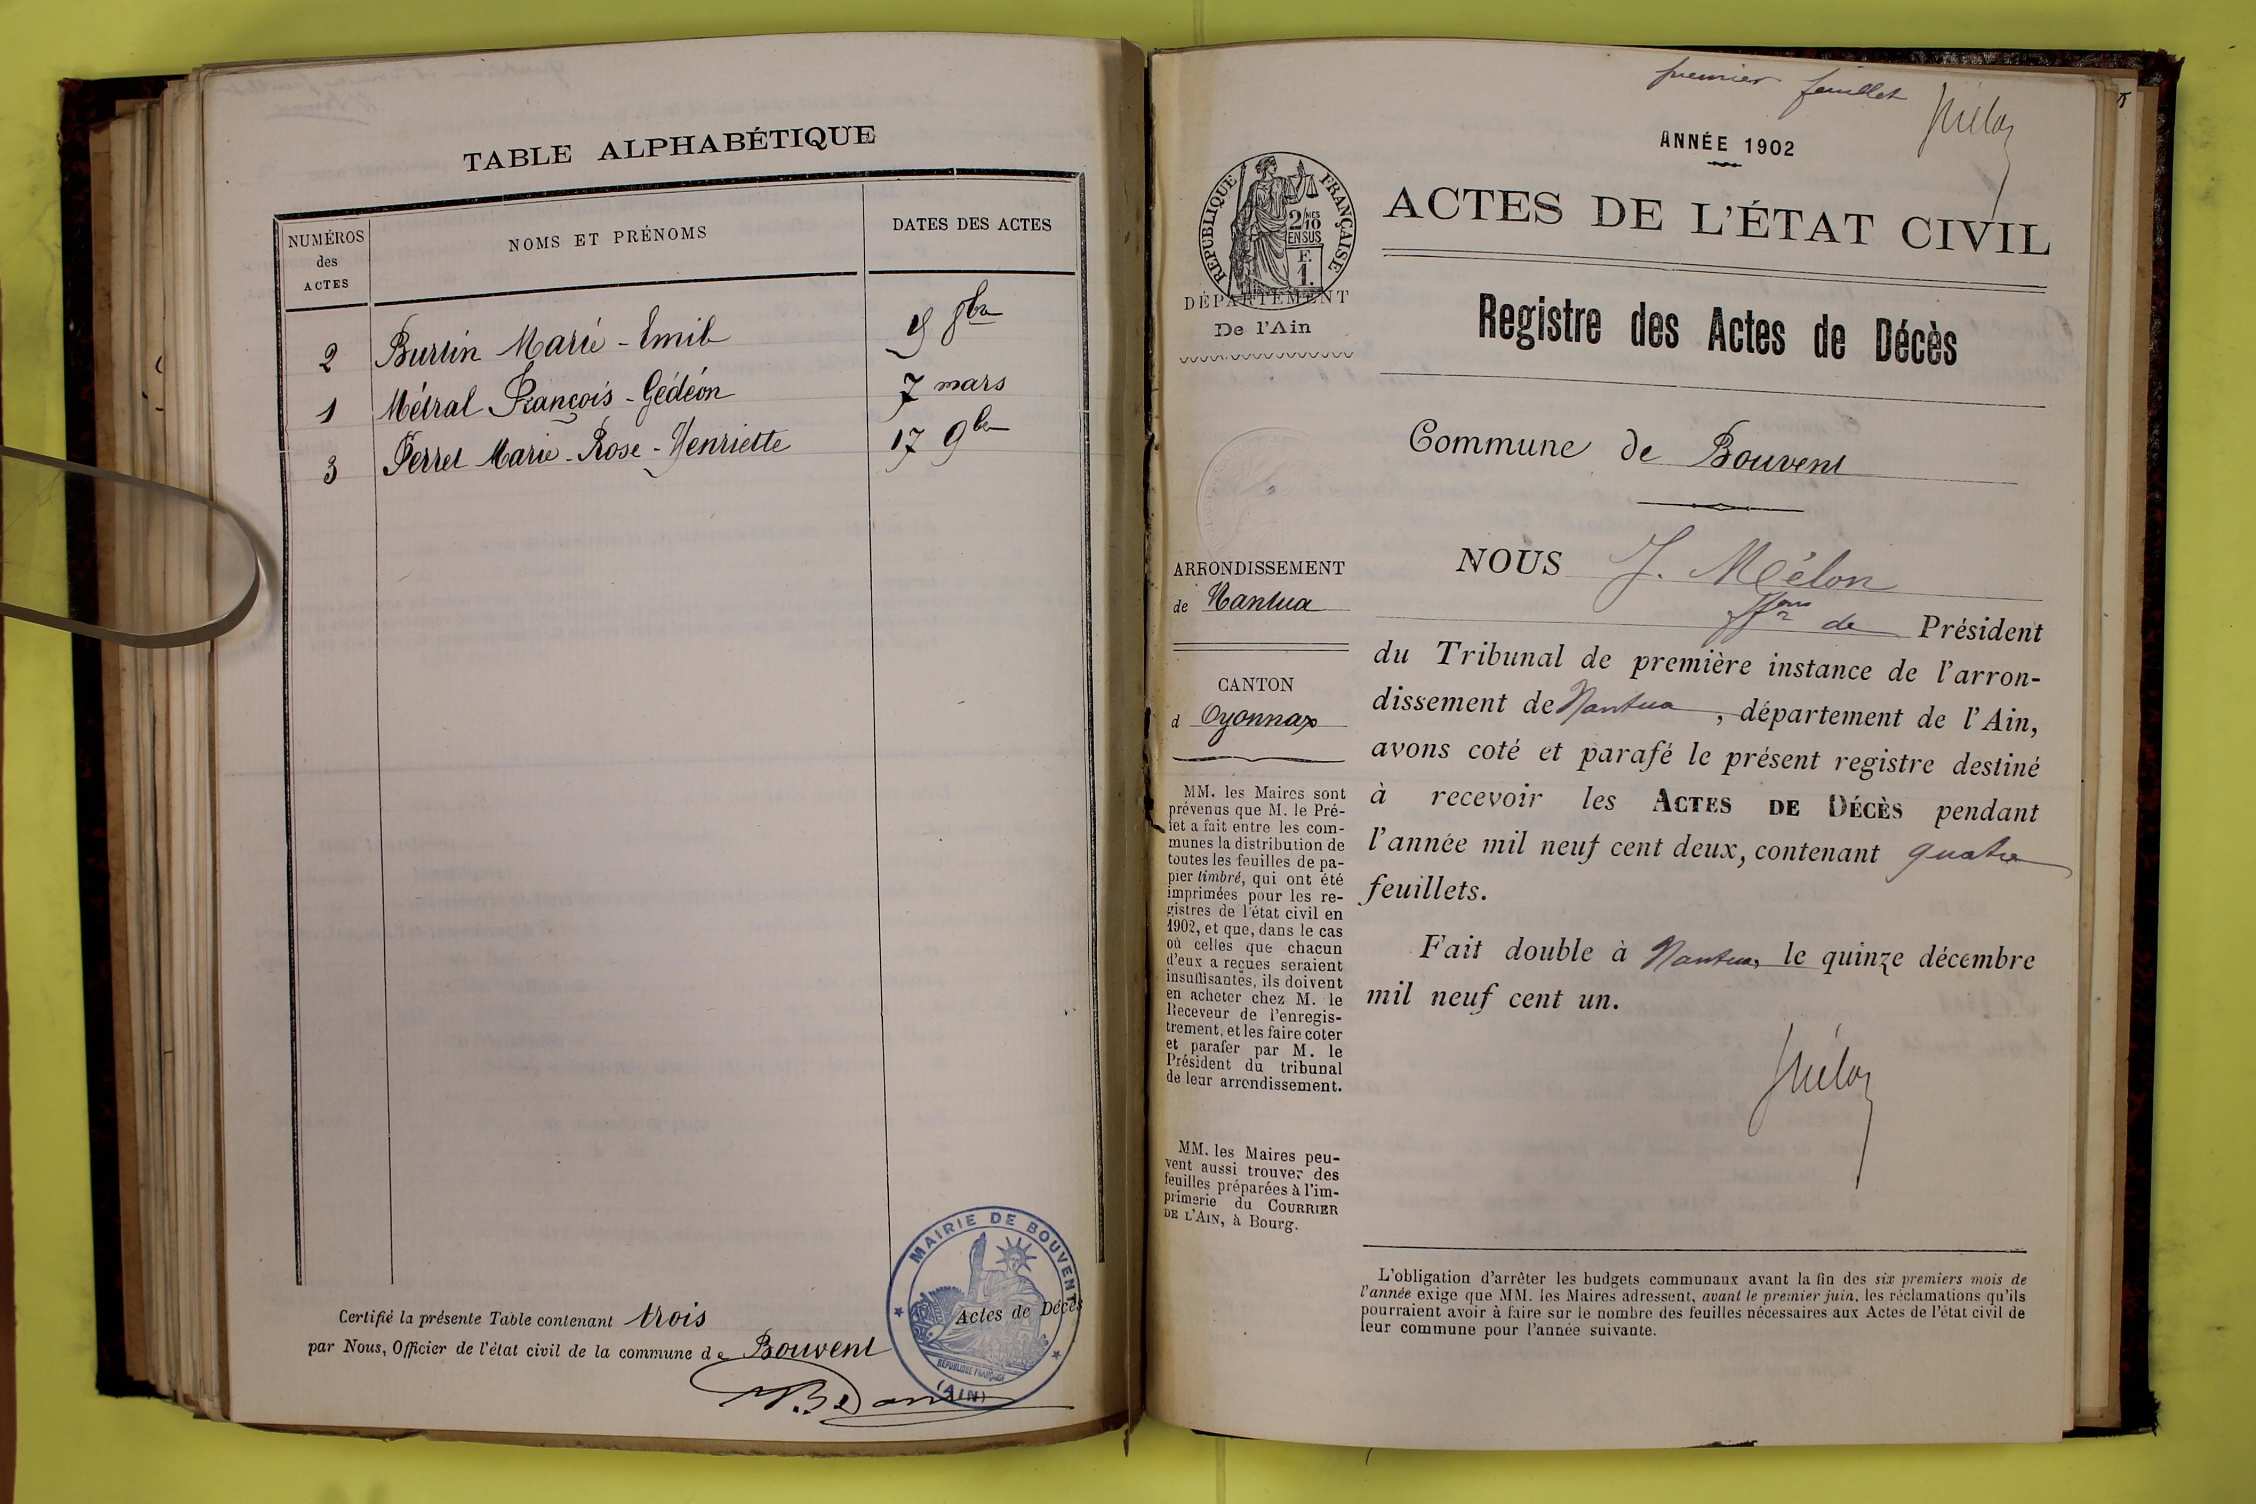 TABLE ALPHABÉTIQUE
NUMÉROS
des
ACTES
NOMS ET PRÉNOMS
DATES DES ACTES
2 Burtin Marie - Emile 8bre
1 Métral François - Gédéon 7 mars
3 Perret Marie - Rose - Henriette 17 9bre
Certifié la présente Table contenant trois Actes de Décès
par Nous, Officier de l'état civil de la commune de Bouvent
MAIRIE DE BOUVENT
RÉPUBLIQUE FRANÇAISE
(AIN)
premier feuillet
ANNÉE 1902
RÉPUBLIQUE FRANÇAISE
2/10
EN SUS
F.
1.
ACTES DE L'ÉTAT CIVIL
DÉPARTEMENT
De l'Ain
Registre des Actes de Décès
Commune de Bouvent
ARRONDISSEMENT
de Nantua
CANTON
d Oyonnax
MM. les Maires sont
prévenus que M. le Pré-
fet a fait entre les com-
munes la distribution de
toutes les feuilles de pa-
pier timbré, qui ont été
imprimées pour les re-
gistres de l'état civil en
1902, et que, dans le cas
où celles que chacun
d'eux a reçues seraient
insuffisantes, ils doivent
en acheter chez M. le
Receveur de l'enregis-
trement, et les faire coter
et parafer par M. le
Président du tribunal
de leur arrondissement.
MM. les Maires peu-
vent aussi trouver des
feuilles préparées à l'im-
primerie du COURRIER
DE L'AIN, à Bourg.
NOUS J. Mélon
de Président
du Tribunal de première instance de l'arron-
dissement de Nantua, département de l'Ain,
avons coté et parafé le présent registre destiné
à recevoir les ACTES DE DÉCÈS pendant
l'année mil neuf cent deux, contenant quatre
feuillets.
Fait double à Nantua, le quinze décembre
mil neuf cent un.
L'obligation d'arrêter les budgets communaux avant la fin des six premiers mois de
l'année exige que MM. les Maires adressent, avant le premier juin, les réclamations qu'ils
pourraient avoir à faire sur le nombre des feuilles nécessaires aux Actes de l'état civil de
leur commune pour l'année suivante.